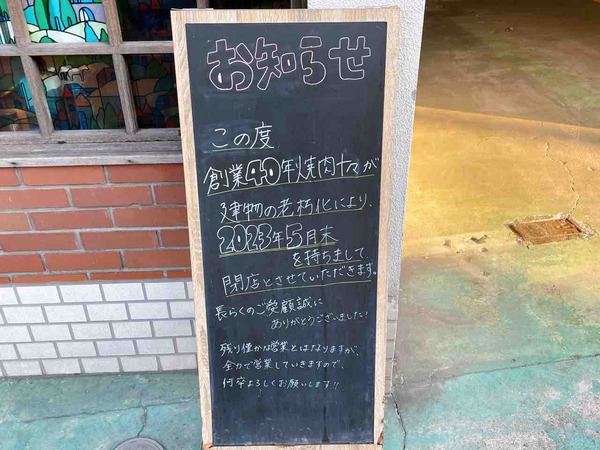 お知らせ
この度
創業40年焼肉十々が
建物の老朽化により、
2023年5月末
を持ちまして
閉店とさせていただきます。
長らくのご愛顧誠に
ありがとうございました!
残り僅かな営業とはなりますが、
全力で営業していきますので、
何卒よろしくお願いします!!